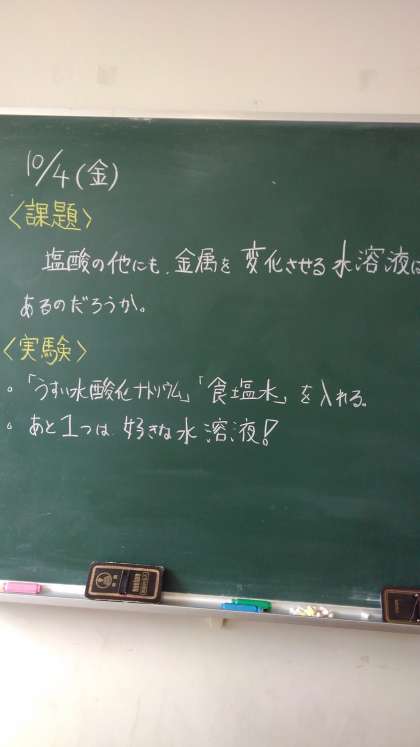 10/4(金)
〈課題〉
塩酸の他にも、金属を変化させる水溶液は
あるのだろうか。
〈実験〉
。「うすい水酸化ナトリウム」「食塩水」を入れる。
。あと1つは、好きな水溶液!